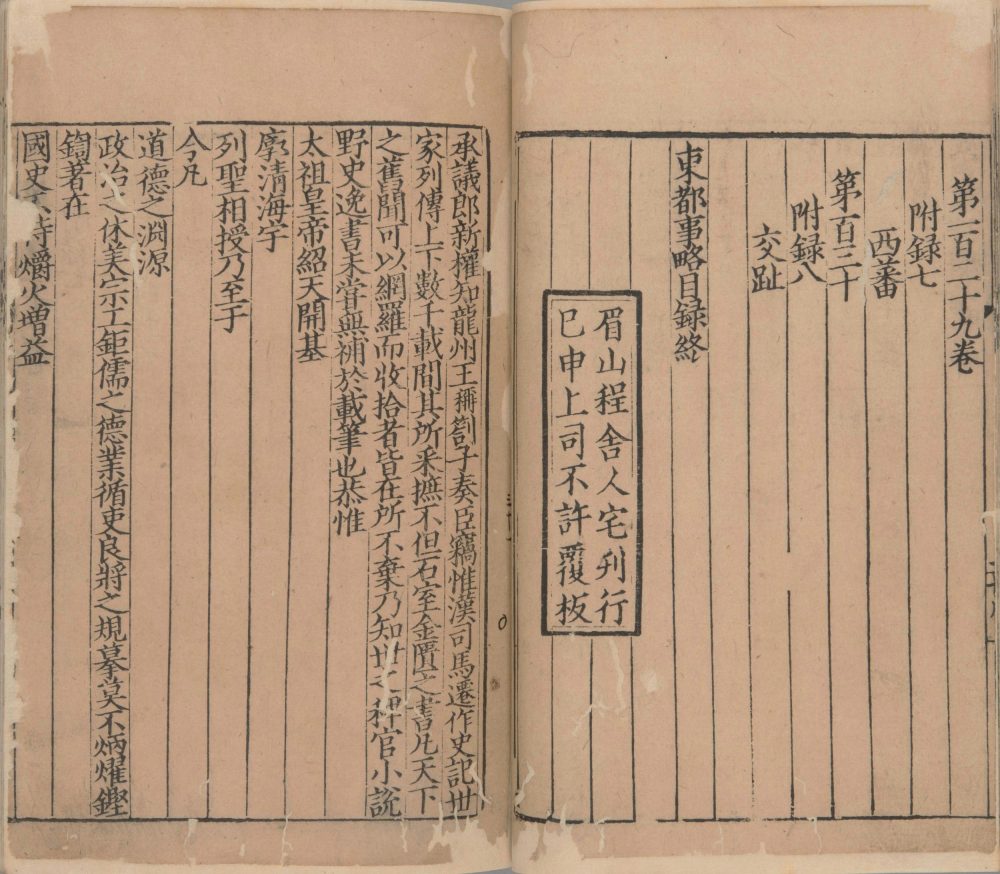 第一百二十九卷
附録七
西蕃
第百三十
附録八
交趾
東都事略目録終
眉山程舍人宅刋行
已申上司不許覆板
承議郎新權知龍州王稱劄子奏臣竊惟漢司馬遷作史記世
家列傳上下數千載間其所采摭不但石室金匱之書凡天下
之舊聞可以網羅而收拾者皆在所不棄乃知世之稗官小説
野史逸書未嘗無補於載筆也恭惟
太祖皇帝紹天開基
廓清海宇
列聖相授乃至于
今凡
道德之淵源
政治之休美宗工鉅儒之德業循吏良將之規摹莫不炳燿鏗
鍧著在
國史不待爝火増益